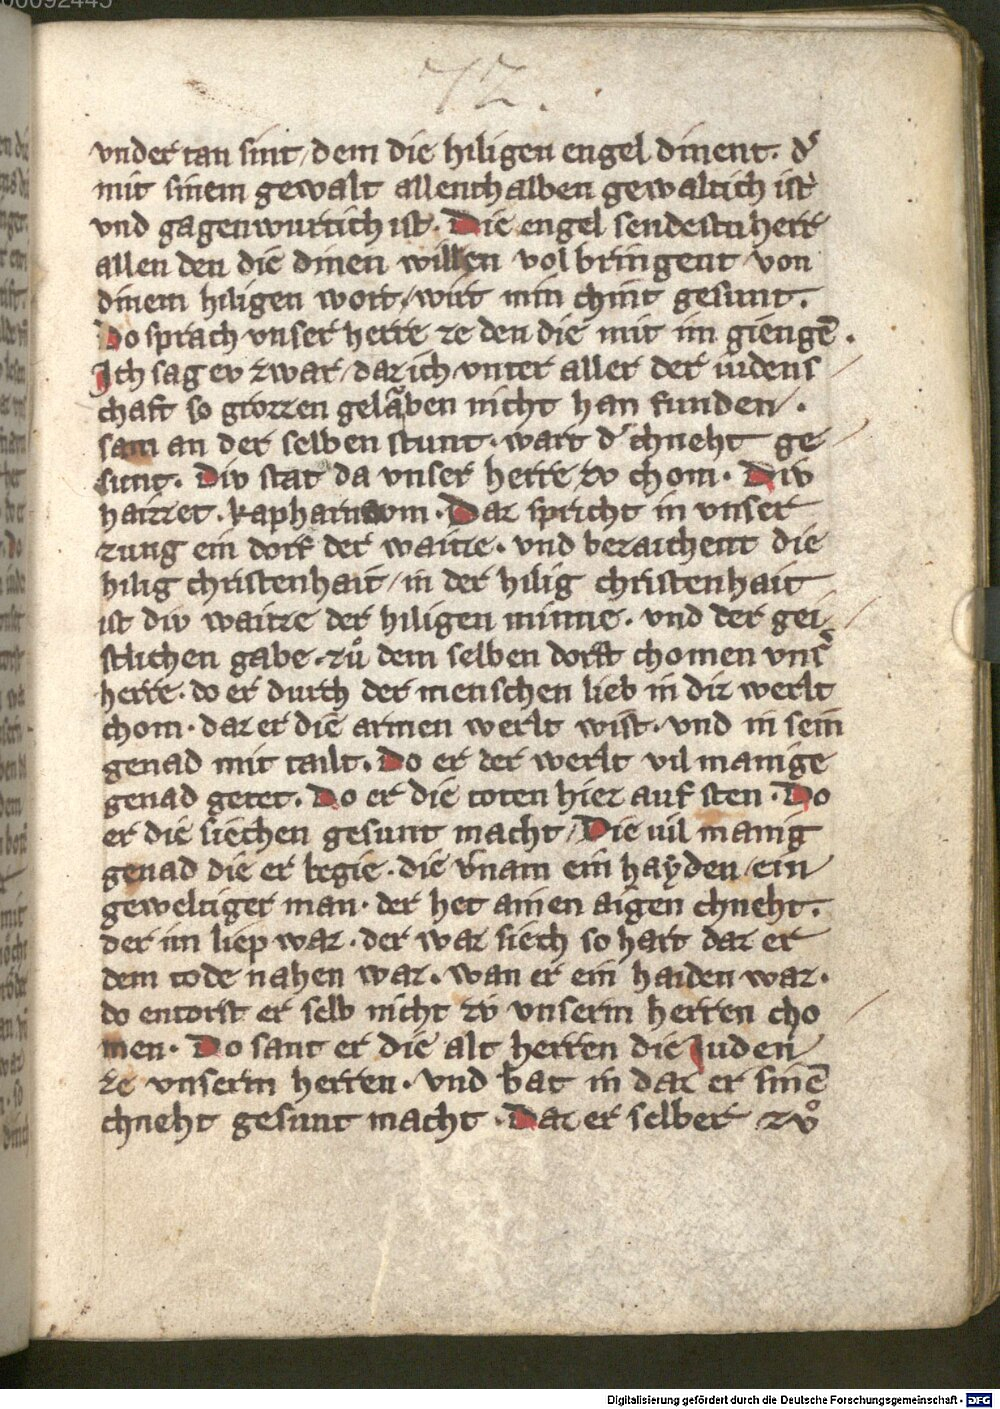 00092445
72.
vnder tan sint / dem die hiligen engel dinent. d͛
mit sinem gewalt allenthalben gewaltich ist
vnd gagenwurtich ist. Die engel sendestu herr
allen den die dinen willen volbringent von
dinem hiligen wort / wirt min chint gesunt.
Do sprach vnser herre ze den die mit im giengē.
Ich sag ev zwar / daz ich vnter aller der iudens
chaft so grozzen gelauben nicht han funden.
sam an der selben stunt. wart d͛ chneht ge
sunt. Div stat da vnser herre zv chom. Div
haizzet. kapharnavm. Daz spricht in vnser
zung ein dorf der waitze. vnd bezaichent die
hilig christenhait / in der hilig christenhait
ist div waitze der hiligen minne. vnd der gei
stlichen gabe. zů dem selben dorff chomen vns͛
herre. do er durch der menschen lieb in diz werlt
chom. daz er die armen werlt wist. vnd in sein
genad mit tailt. Do er der werlt vil manige
genad getet. Do er die toten hiez auf sten. Do
er die siechen gesunt macht / Die vil manig
genad die er begie. die v͛nam ein hayden / ein
geweltiger man. der het ainen aigen chneht.
der im liep waz. der waz siech so hart daz er
dem tode nahen waz. wan er ein haiden waz.
do entorst er selb nicht zv unserm herren cho
men. Do sant er die alt herren die Juden
ze vnserm herren. vnd bat in daz er sinē
chneht gesunt macht. Daz er selber zvͦ
Digitalisierung gefördert durch die Deutsche Forschungsgemeinschaft - DFG